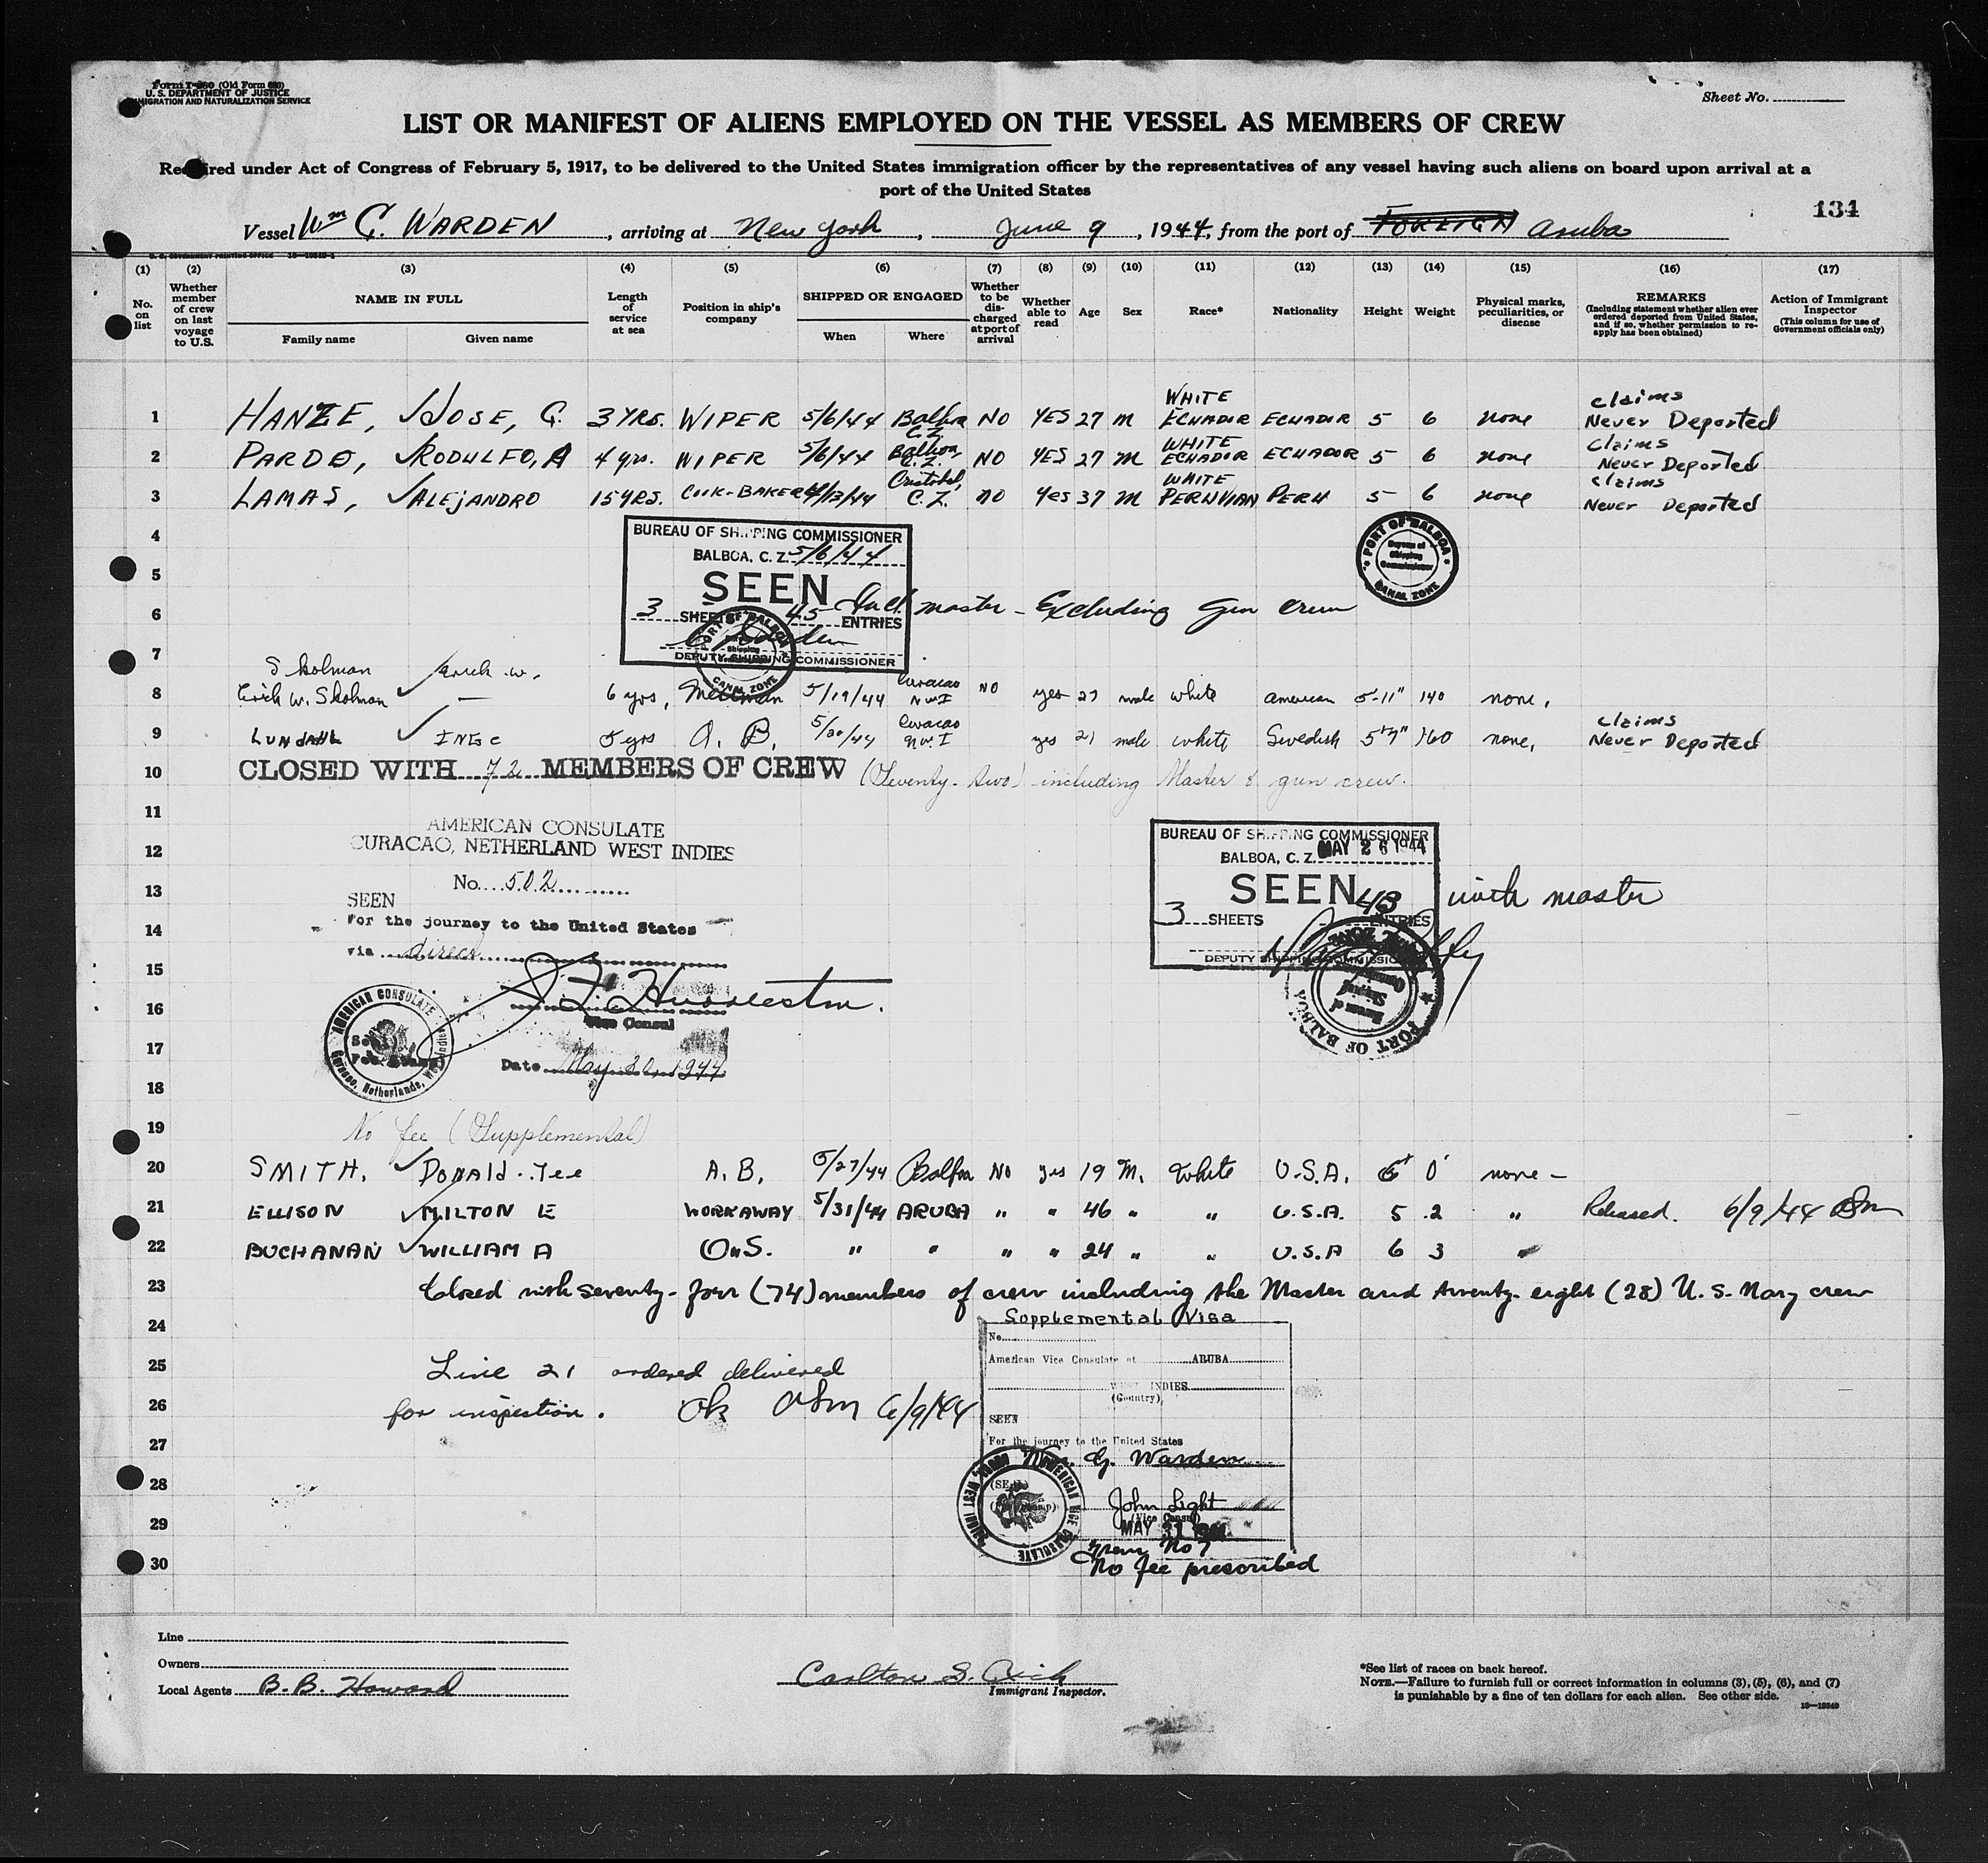 Form I-480 (Old Form 680)
U. S. DEPARTMENT OF JUSTICE
IMMIGRATION AND NATURALIZATION SERVICE
Sheet No.
LIST OR MANIFEST OF ALIENS EMPLOYED ON THE VESSEL AS MEMBERS OF CREW
Required under Act of Congress of February 5, 1917, to be delivered to the United States immigration officer by the representatives of any vessel having such aliens on board upon arrival at a
port of the United States
134
Vessel Wm G. WARDEN, arriving at New York, June 9, 1944, from the port of FOREIGN Aruba
U. S. GOVERNMENT PRINTING OFFICE
(1) (2) (3) (4) (5) (6) (7) (8) (9) (10) (11) (12) (13) (14) (15) (16) (17)
No. on list
Whether member of crew on last voyage to U.S.
NAME IN FULL
Family name Given name
Length of service at sea
Position in ship's company
SHIPPED OR ENGAGED
When Where
Whether to be discharged at port of arrival
Whether able to read
Age
Sex
Race*
Nationality
Height
Weight
Physical marks, peculiarities, or disease
REMARKS
(Including statement whether alien ever ordered deported from United States, and if so, whether permission to reapply has been obtained)
Action of Immigrant Inspector
(This column for use of Government officials only)
1 HANZE, JOSE, G. 3 YRS. WIPER 5/6/44 Balboa C.Z. NO YES 27 M WHITE ECUADIR ECUADIR 5 6 none claims Never Deported
2 PARDO, RODULFO, A 4 yrs. WIPER 5/6/44 Balboa, C.Z. NO YES 27 M WHITE ECUADOR ECUADOR 5 6 none Claims Never Deported
3 LAMAS, ALEJANDRO 15 YRS. COOK-BAKER 4/13/44 Cristobal, C.Z. NO Yes 37 M WHITE PERUVIAN PERU 5 6 none claims Never Deported
4
BUREAU OF SHIPPING COMMISSIONER
BALBOA, C. Z. 5/6/44
5
SEEN
PORT OF BALBOA
Bureau of Shipping Commissioner
CANAL ZONE
6
3 SHEETS 45 ENTRIES Incl. master - Excluding Gun Crew
DEPUTY SHIPPING COMMISSIONER
PORT OF BALBOA
CANAL ZONE
7
Skolman Erick W.
8 Erick W. Skolman — 6 yrs, Messman 5/19/44 Curacao N.W.I NO yes 27 male white american 5-11" 140 none,
9 LUNDAHL INGE 5 yrs A. B. 5/20/44 Curacao N.W.I yes 21 male white Swedish 5'7" 160 none, claims Never Deported
10 CLOSED WITH 72 MEMBERS OF CREW (Seventy-two) including Master & gun crew.
11
AMERICAN CONSULATE
CURACAO, NETHERLAND WEST INDIES
12
No. 502
13
SEEN
For the journey to the United States
14
via direct
15
16
Vice Consul
17
Date May 20, 1944
18
AMERICAN CONSULATE
Curacao, Netherlands, West Indies
BUREAU OF SHIPPING COMMISSIONER
BALBOA, C. Z. MAY 26 1944
SEEN
3 SHEETS 43 ENTRIES with master
DEPUTY SHIPPING COMMISSIONER
PORT OF BALBOA
19
No fee (Supplemental)
20 SMITH, DONALD. Lee A. B. 5/27/44 Balboa No yes 19 M. White U.S.A. 6' 0" none -
21 ELLISON MILTON E WORKAWAY 5/31/44 ARUBA " " 46 " " U.S.A. 5 .2 " Released. 6/9/44
22 BUCHANAN WILLIAM A O.S. " " " " 24 " " U.S.A 6 3 "
23 Closed with seventy-four (74) members of crew including the Master and twenty-eight (28) U. S. Navy crew
24
Supplemental Visa
No.
25
American Vice Consulate at ARUBA
WEST INDIES
(Country)
Line 21 ordered delivered
26
for inspection. Ok 6/9/44
SEEN
27
For the journey to the United States
Wm. G. Warden
28
(SEAL)
John Light
(Vice Consul)
29
MAY 31 1944
AMERICAN VICE CONSULATE
Item No 7
30
No fee prescribed
Line
Owners
Local Agents B. B. Howard
Immigrant Inspector.
*See list of races on back hereof.
NOTE.—Failure to furnish full or correct information in columns (3), (5), (6), and (7)
is punishable by a fine of ten dollars for each alien. See other side.